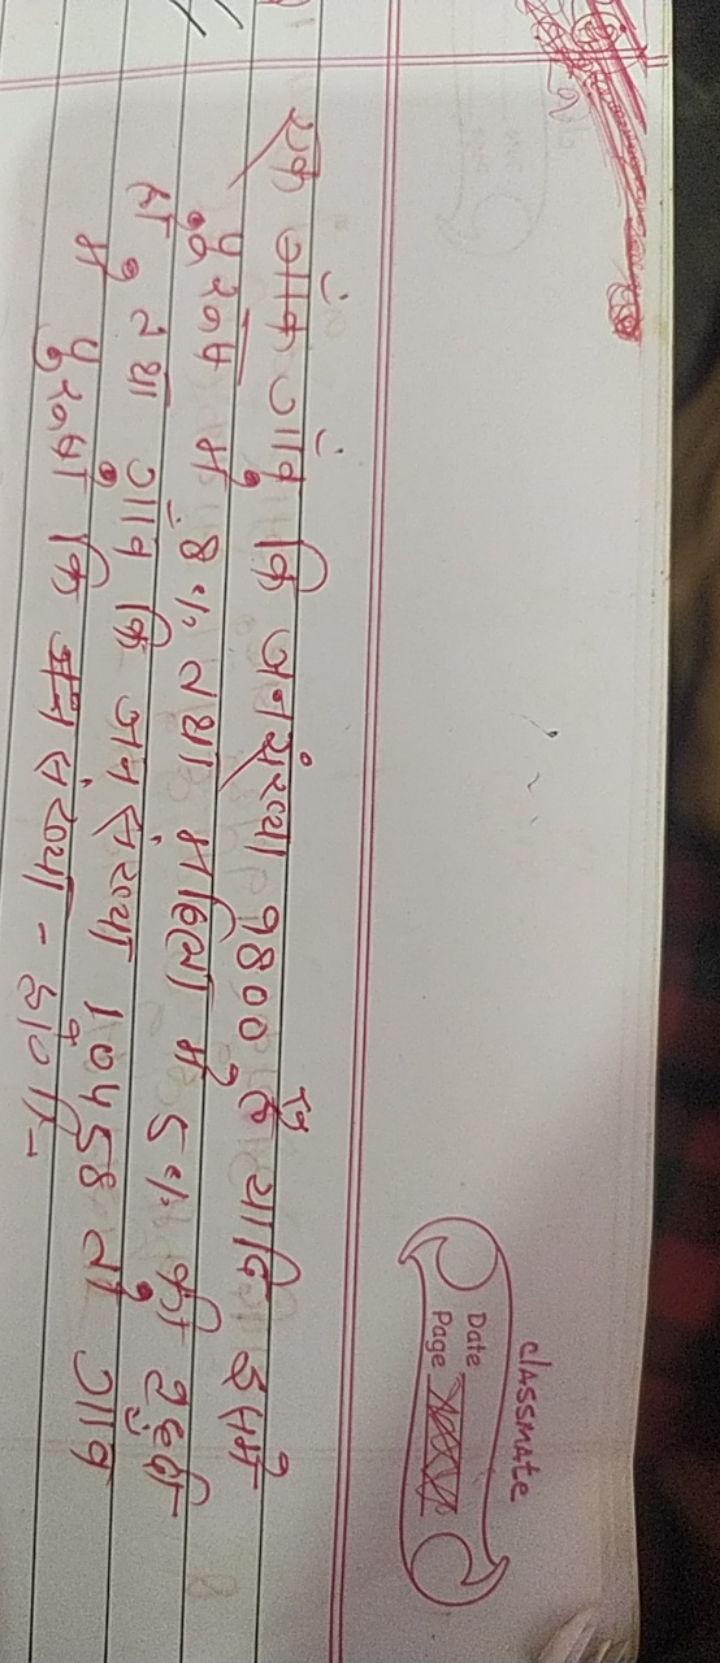 classmate
Date
Page
एक गांव गांव कि जनसंख्या 9800 है यादि इसमे
पुरूष में 8% तथा महिला मे 5% की वृद्धि
हो तथा गाव कि जनसंख्या 10458 हो गाव
मे पुरूषो कि जनसंख्या - होगी -